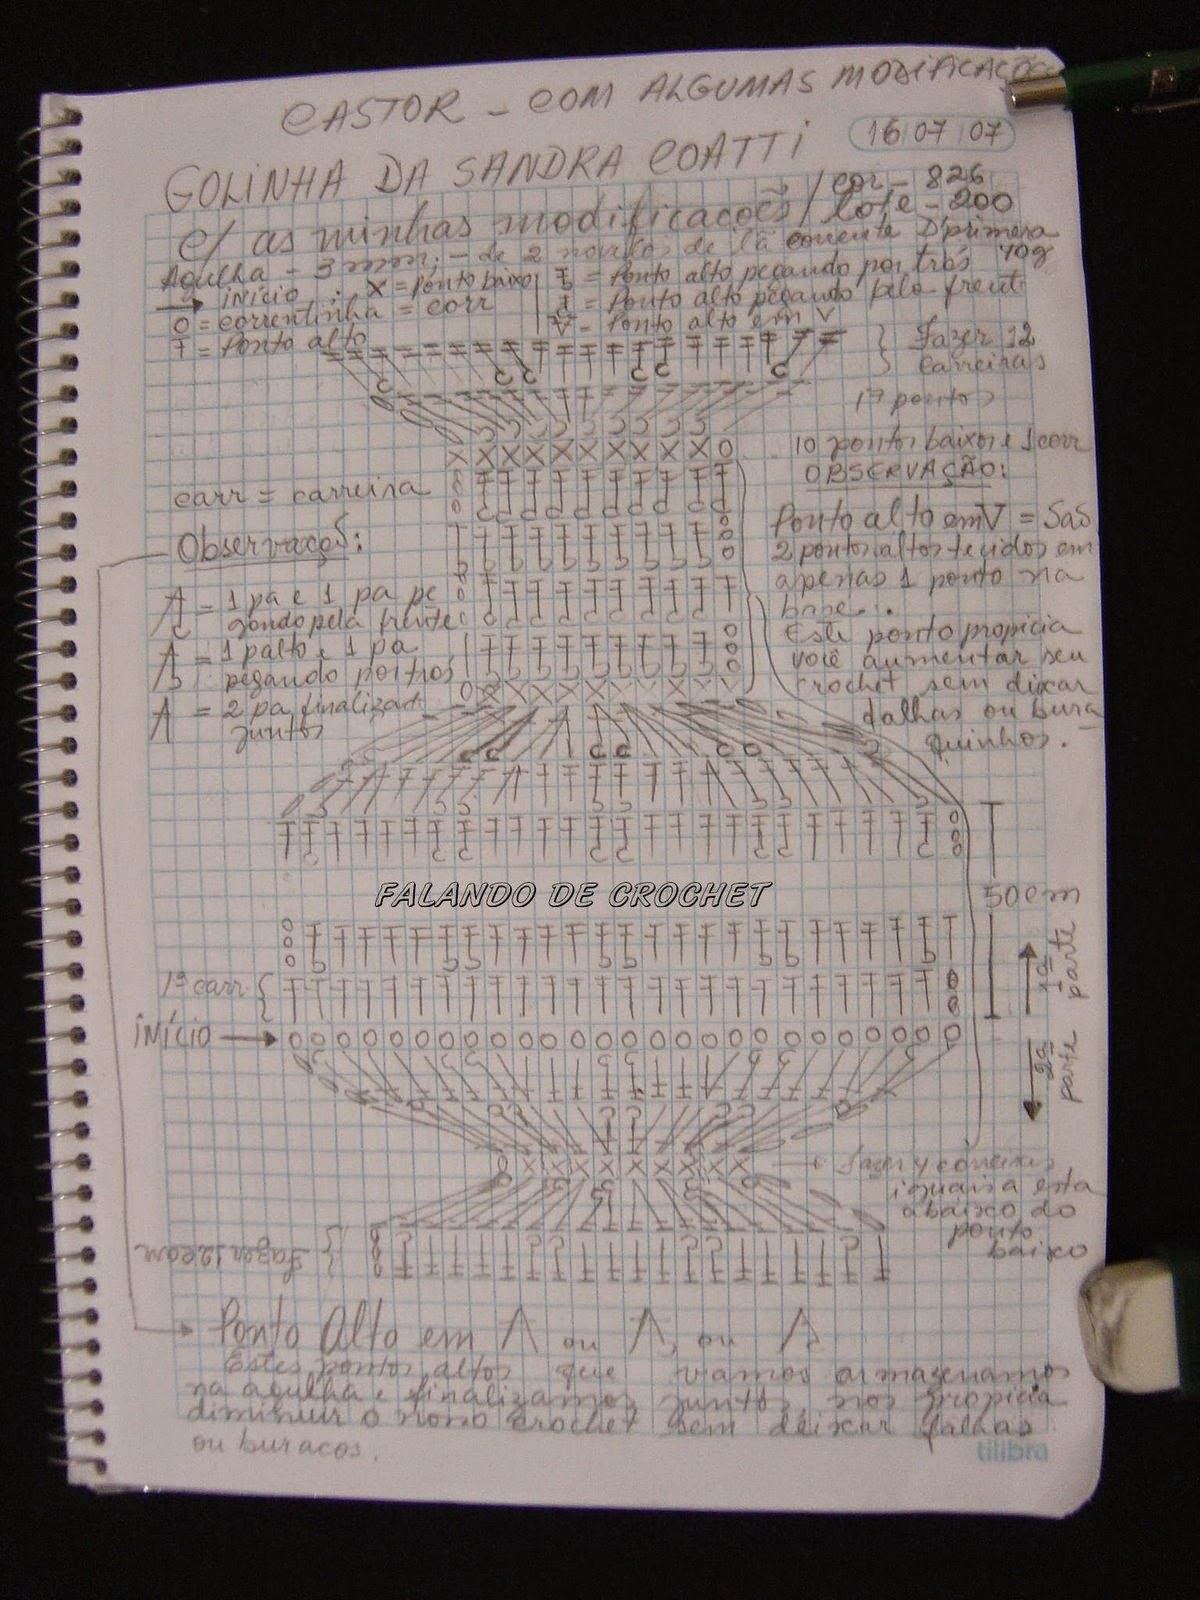 CASTOR - COM ALGUMAS MODIFICAÇÕES
16 07 07
GOLINHA DA SANDRA COATTI
c/ as minhas modificações / cor - 826
lote - 200
Agulha - 3 - de 2 novelos de lã corrente D'primera 40g
início : X = ponto baixo
= Ponto alto pegando por trás
0 = correntinha = corr
= Ponto alto pegando pela frente
= Ponto alto
V = Ponto alto em V
Fazer 12
carreiras
17 pontos
10 pontos baixos e 1 corr
OBSERVAÇÃO:
carr = carreira
Ponto alto em V = São
2 pontos altos tecidos em
apenas 1 ponto na
base.
Este ponto propicia
você aumentar seu
crochet sem dixar
falhas ou bura
quinhos.
Observações:
= 1 pa e 1 pa pe
gando pela frente
= 1 palto e 1 pa
pegando por trás
= 2 pa finalizad
juntos
FALANDO DE CROCHET
50cm
1ª parte
1ª carr
INÍCIO
2ª parte
fazer 4 carreiras
iguais a esta
abaixo do
ponto
baixo
Fazer 12 carr
Ponto Alto em Λ ou Λ, ou Λ
Estes pontos altos que vamos armazenamos
na agulha e finalizamos juntos, nos propicia
diminuir o nosso crochet sem deixar falhas
ou buracos.
tilibra